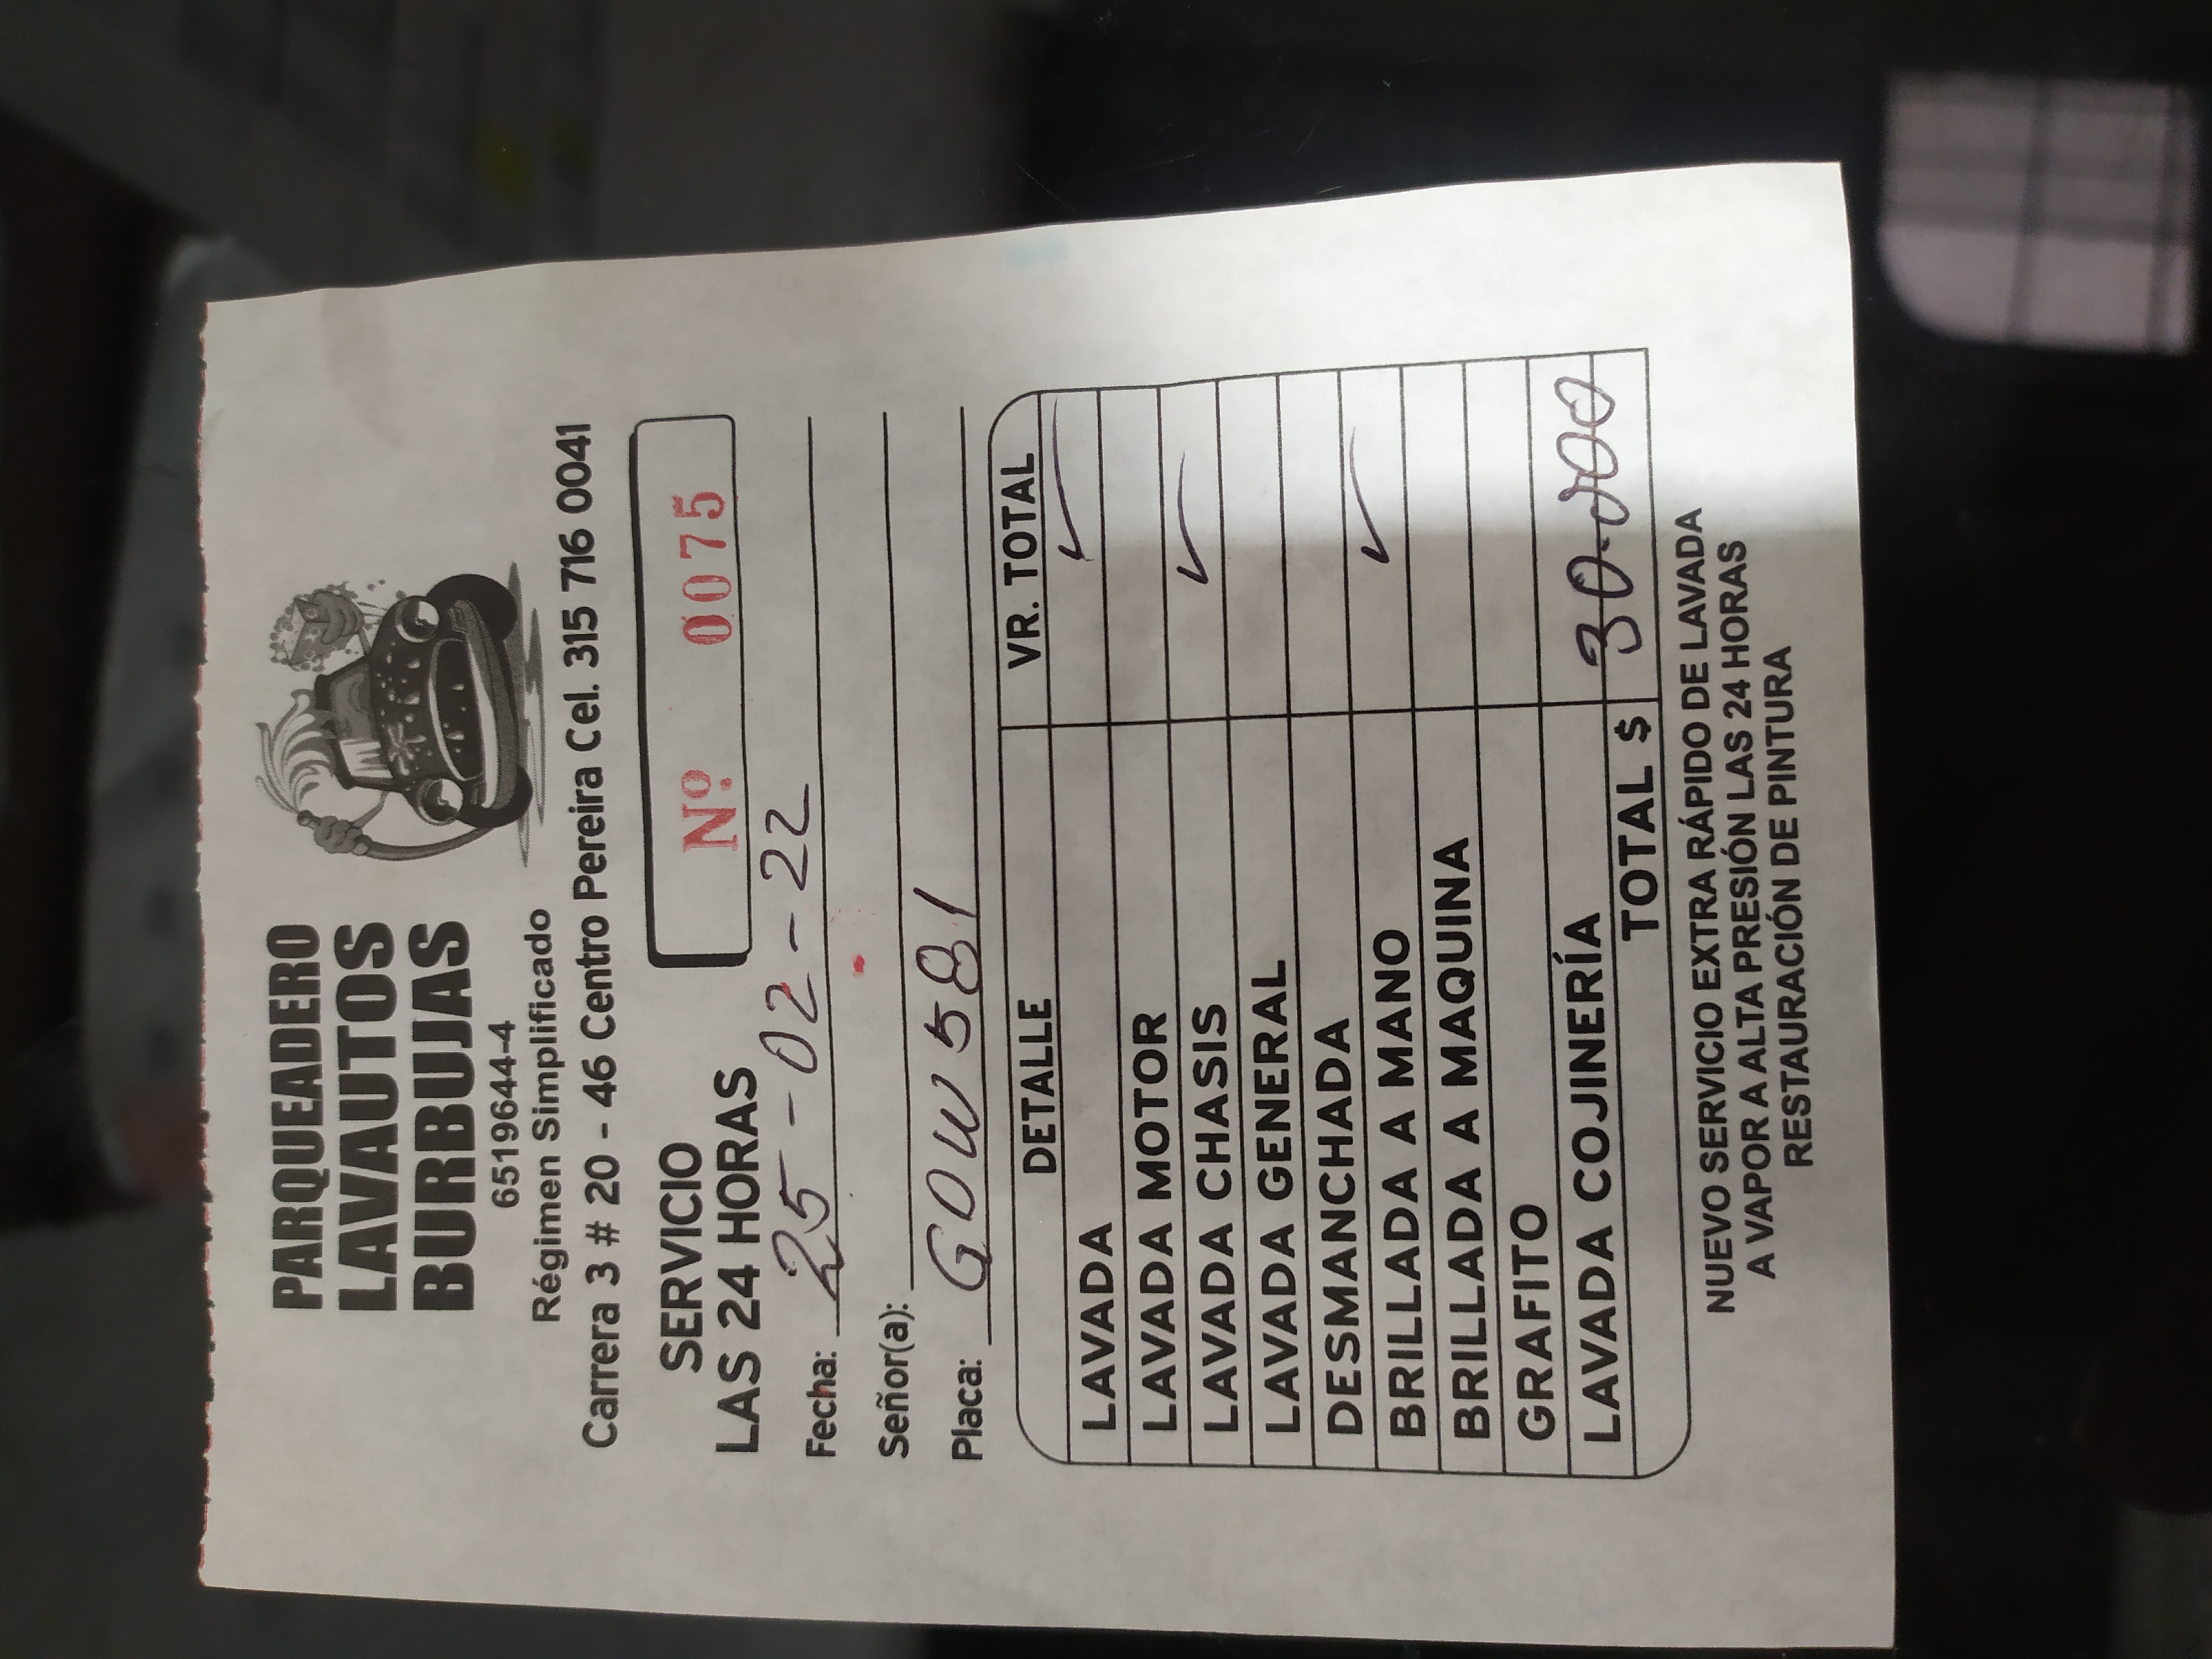 PARQUEADERO
LAVAUTOS
BURBUJAS
6519644-4
Régimen Simplificado
Carrera 3 # 20 - 46 Centro Pereira Cel. 315 716 0041
SERVICIO
LAS 24 HORAS
Nº 0075
Fecha: 25-02-22
Señor(a):
Placa: GOW 581
DETALLE VR. TOTAL
LAVADA ✓
LAVADA MOTOR
LAVADA CHASIS ✓
LAVADA GENERAL
DESMANCHADA
BRILLADA A MANO ✓
BRILLADA A MAQUINA
GRAFITO
LAVADA COJINERÍA
TOTAL $ 30.000
NUEVO SERVICIO EXTRA RÁPIDO DE LAVADA
A VAPOR A ALTA PRESIÓN LAS 24 HORAS
RESTAURACIÓN DE PINTURA